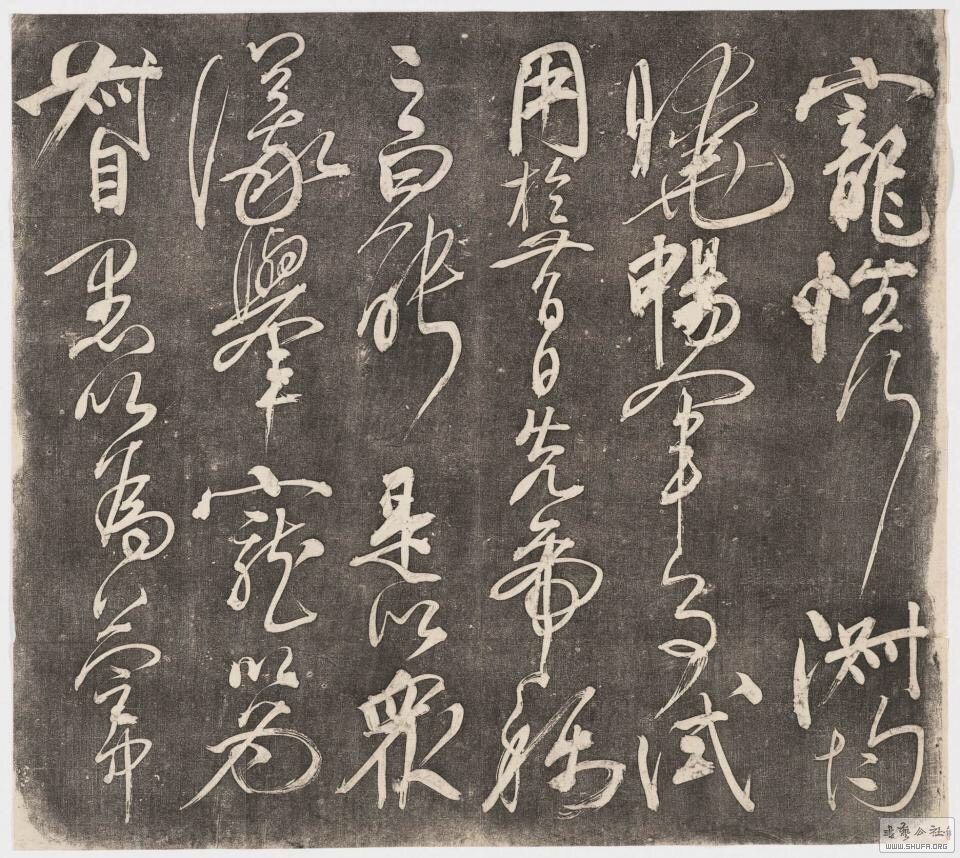 寵性行淑均
曉暢軍事試
用於昔日先帝稱
之曰能是以眾
議舉寵以為
督愚以為營中
書藝公社
WWW.SHUFA.ORG